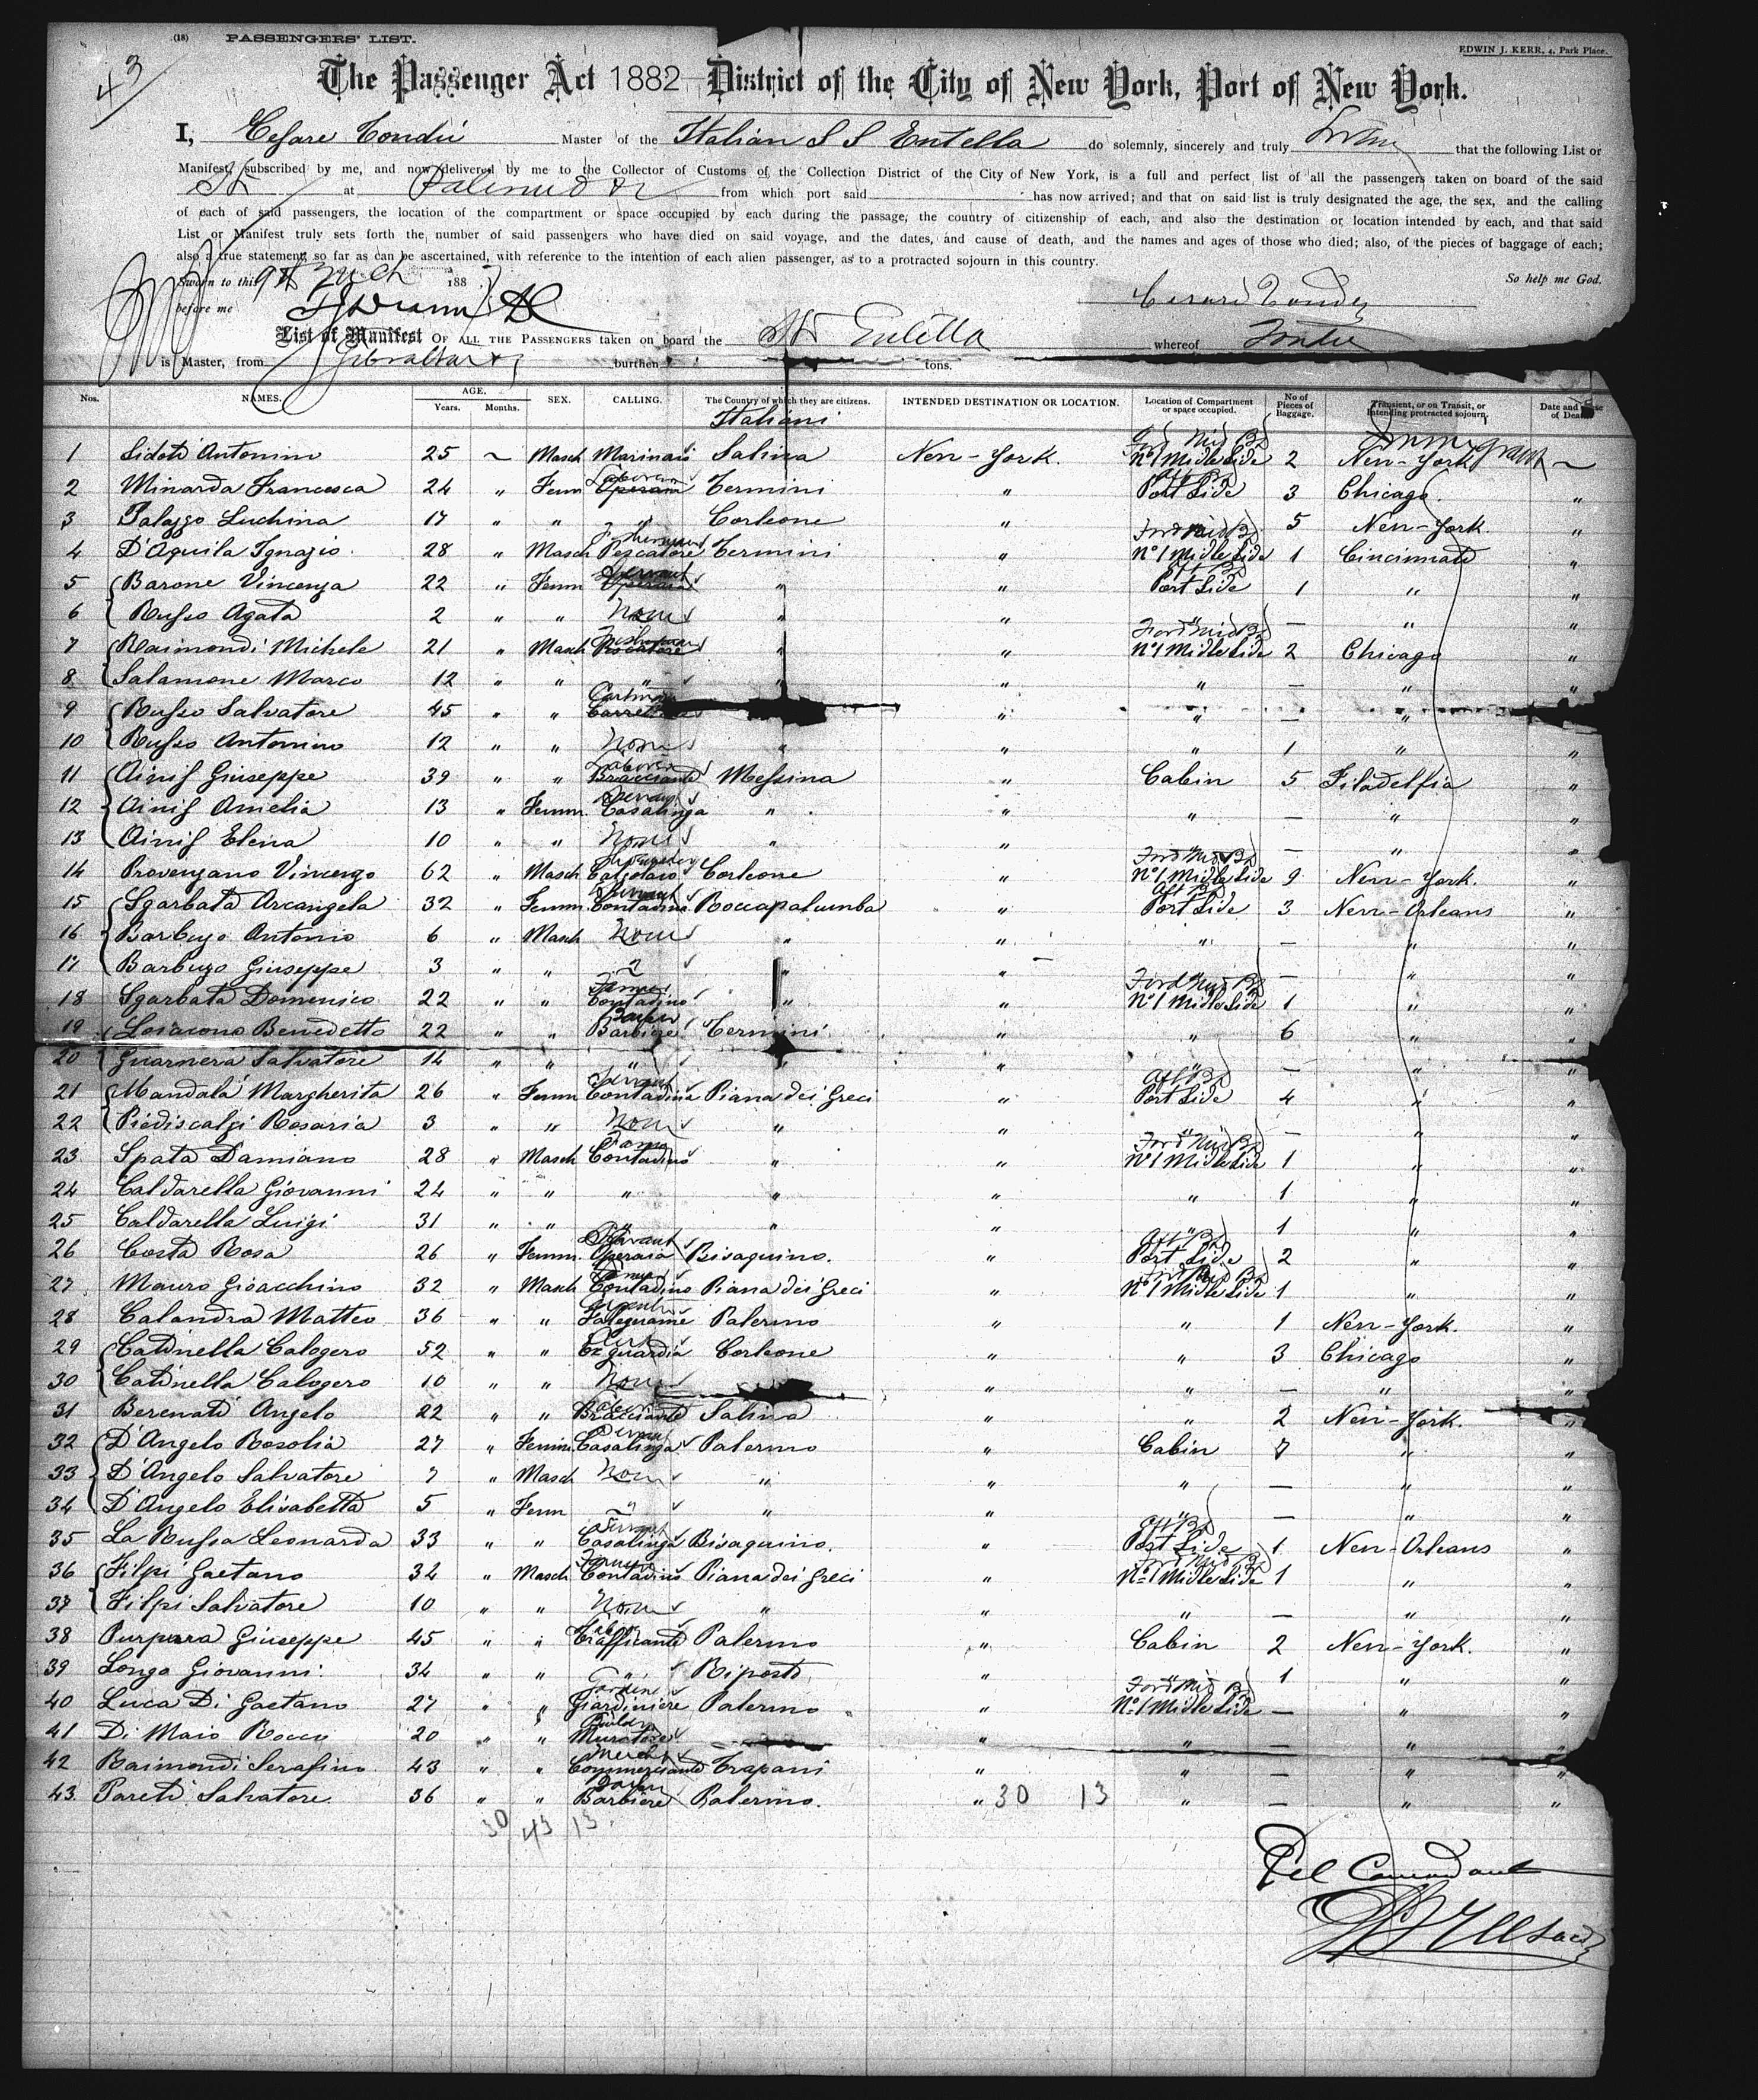 43
(18) PASSENGERS' LIST.
EDWIN J. KERR, 4, Park Place.
The Passenger Act 1882 District of the City of New York, Port of New York.
I, Cesare Tondù Master of the Italian S S Entella do solemnly, sincerely and truly that the following List or
Manifest, subscribed by me, and now delivered by me to the Collector of Customs of the Collection District of the City of New York, is a full and perfect list of all the passengers taken on board of the said
at from which port said has now arrived; and that on said list is truly designated the age, the sex, and the calling
of each of said passengers, the location of the compartment or space occupied by each during the passage, the country of citizenship of each, and also the destination or location intended by each, and that said
List or Manifest truly sets forth the number of said passengers who have died on said voyage, and the dates, and cause of death, and the names and ages of those who died; also, of the pieces of baggage of each;
also a true statement, so far as can be ascertained, with reference to the intention of each alien passenger, as to a protracted sojourn in this country.
Sworn to this 9th 188 So help me God.
before me
List or Manifest OF ALL THE PASSENGERS taken on board the SS Entella whereof Tondu
is Master, from Gibraltar burthen tons.
Nos. NAMES. AGE. Years. Months. SEX. CALLING. The Country of which they are citizens. INTENDED DESTINATION OR LOCATION. Location of Compartment or space occupied. No of Pieces of Baggage. Transient, or on Transit, or Intending protracted sojourn. Date and Cause of Death
Italiani
1 Sidoti Antonino 25 ~ Masch Marinaio Salina New-York. N°1 Midle Side 2 New-York ~
2 Minarda Francesca 24 " Femm Operaia Termini " Port Side 3 Chicago. "
3 Palazzo Luchina 17 " " " Corleone " 5 New-York. "
4 D'Aquila Ignazio 28 " Masch Fisherman Pescatore Termini " N°1 Midle Side 1 Cincinnati "
5 Barone Vincenza 22 " Femm Servant Operaia " " Port Side 1 " "
6 Russo Agata 2 " " None " " " — " "
7 Raimondi Michele 21 " Masch Fisherman Pescatore " " N°1 Midle Side 2 Chicago "
8 Salamone Marco 12 " " " " " " — " "
9 Russo Salvatore 45 " " " " — "
10 Russo Antonino 12 " " None " " " 1 " "
11 Ainis Giuseppe 39 " " Laborer Bracciante Messina " Cabin 5 Filadelfia "
12 Ainis Amelia 13 " Femm. Servant Casalinga " " " — " "
13 Ainis Elena 10 " " None " " — " "
14 Provenzano Vincenzo 62 " Masch Calzolaio Corleone " N°1 Midle Side 9 New-York. "
15 Sgarbata Arcangela 32 " Femm. Servant Contadina Roccapalumba " Port Side 3 New-Orleans "
16 Barbuzo Antonio 6 " Masch None " " " — " "
17 Barbuzo Giuseppe 3 " " " " " — " "
18 Sgarbata Domenico 22 " " Farmer Contadino " " N°1 Midle Side 1 " "
19 Loiacono Benedetto 22 " " Barber Barbiere Termini " " 6 " "
20 Guarnera Salvatore 14 " " " " " " — " "
21 Mandalà Margherita 26 " Femm Servant Contadina Piana dei Greci " Port Side 4 " "
22 Piediscalzi Rosaria 3 " " None " " " — " "
23 Spata Damiano 28 " Masch Farmer Contadino " " N°1 Midle Side 1 " "
24 Caldarella Giovanni 24 " " " " " " 1 " "
25 Caldarella Luigi 31 " " " " " " 1 " "
26 Costa Rosa 26 " Femm. Servant Operaia Bisaquino. " Port Side 2 " "
27 Mauro Gioacchino 32 " Masch Farmer Contadino Piana dei Greci " N°1 Midle Side 1 " "
28 Calandra Matteo 36 " " Falegname Palermo " " 1 New-York. "
29 Catinella Calogero 52 " " Ex guardia Corleone " " 3 Chicago "
30 Catinella Calogero 10 " " None " " — " "
31 Berenati Angelo 22 " " Bracciante Salina " " 2 New-York. "
32 D'Angelo Rosolia 27 " Femm. Servant Casalinga Palermo " Cabin 7 " "
33 D'Angelo Salvatore 7 " Masch None " " " — " "
34 D'Angelo Elisabetta 5 " Femm " " " " — " "
35 La Russa Leonarda 33 " " Servant Casalinga Bisaquino. " Port Side 1 New-Orleans "
36 Filpi Gaetano 34 " Masch Farmer Contadino Piana dei Greci " N°1 Midle Side 1 " "
37 Filpi Salvatore 10 " " None " " " — " "
38 Purpura Giuseppe 45 " " Trafficante Palermo " Cabin 2 New-York. "
39 Longo Giovanni 34 " " " Riposto " " 1 " "
40 Luca Di Gaetano 27 " " Giardiniere Palermo " N°1 Midle Side — " "
41 Di Maio Rocco 20 " " Builder Muratore " " — " "
42 Raimondi Serafino 43 " " Commerciante Trapani " " — " "
43 Pareti Salvatore 36 " " Barber Barbiere Palermo. " 30 13 " — " "
30 43 13
Pel Comandante